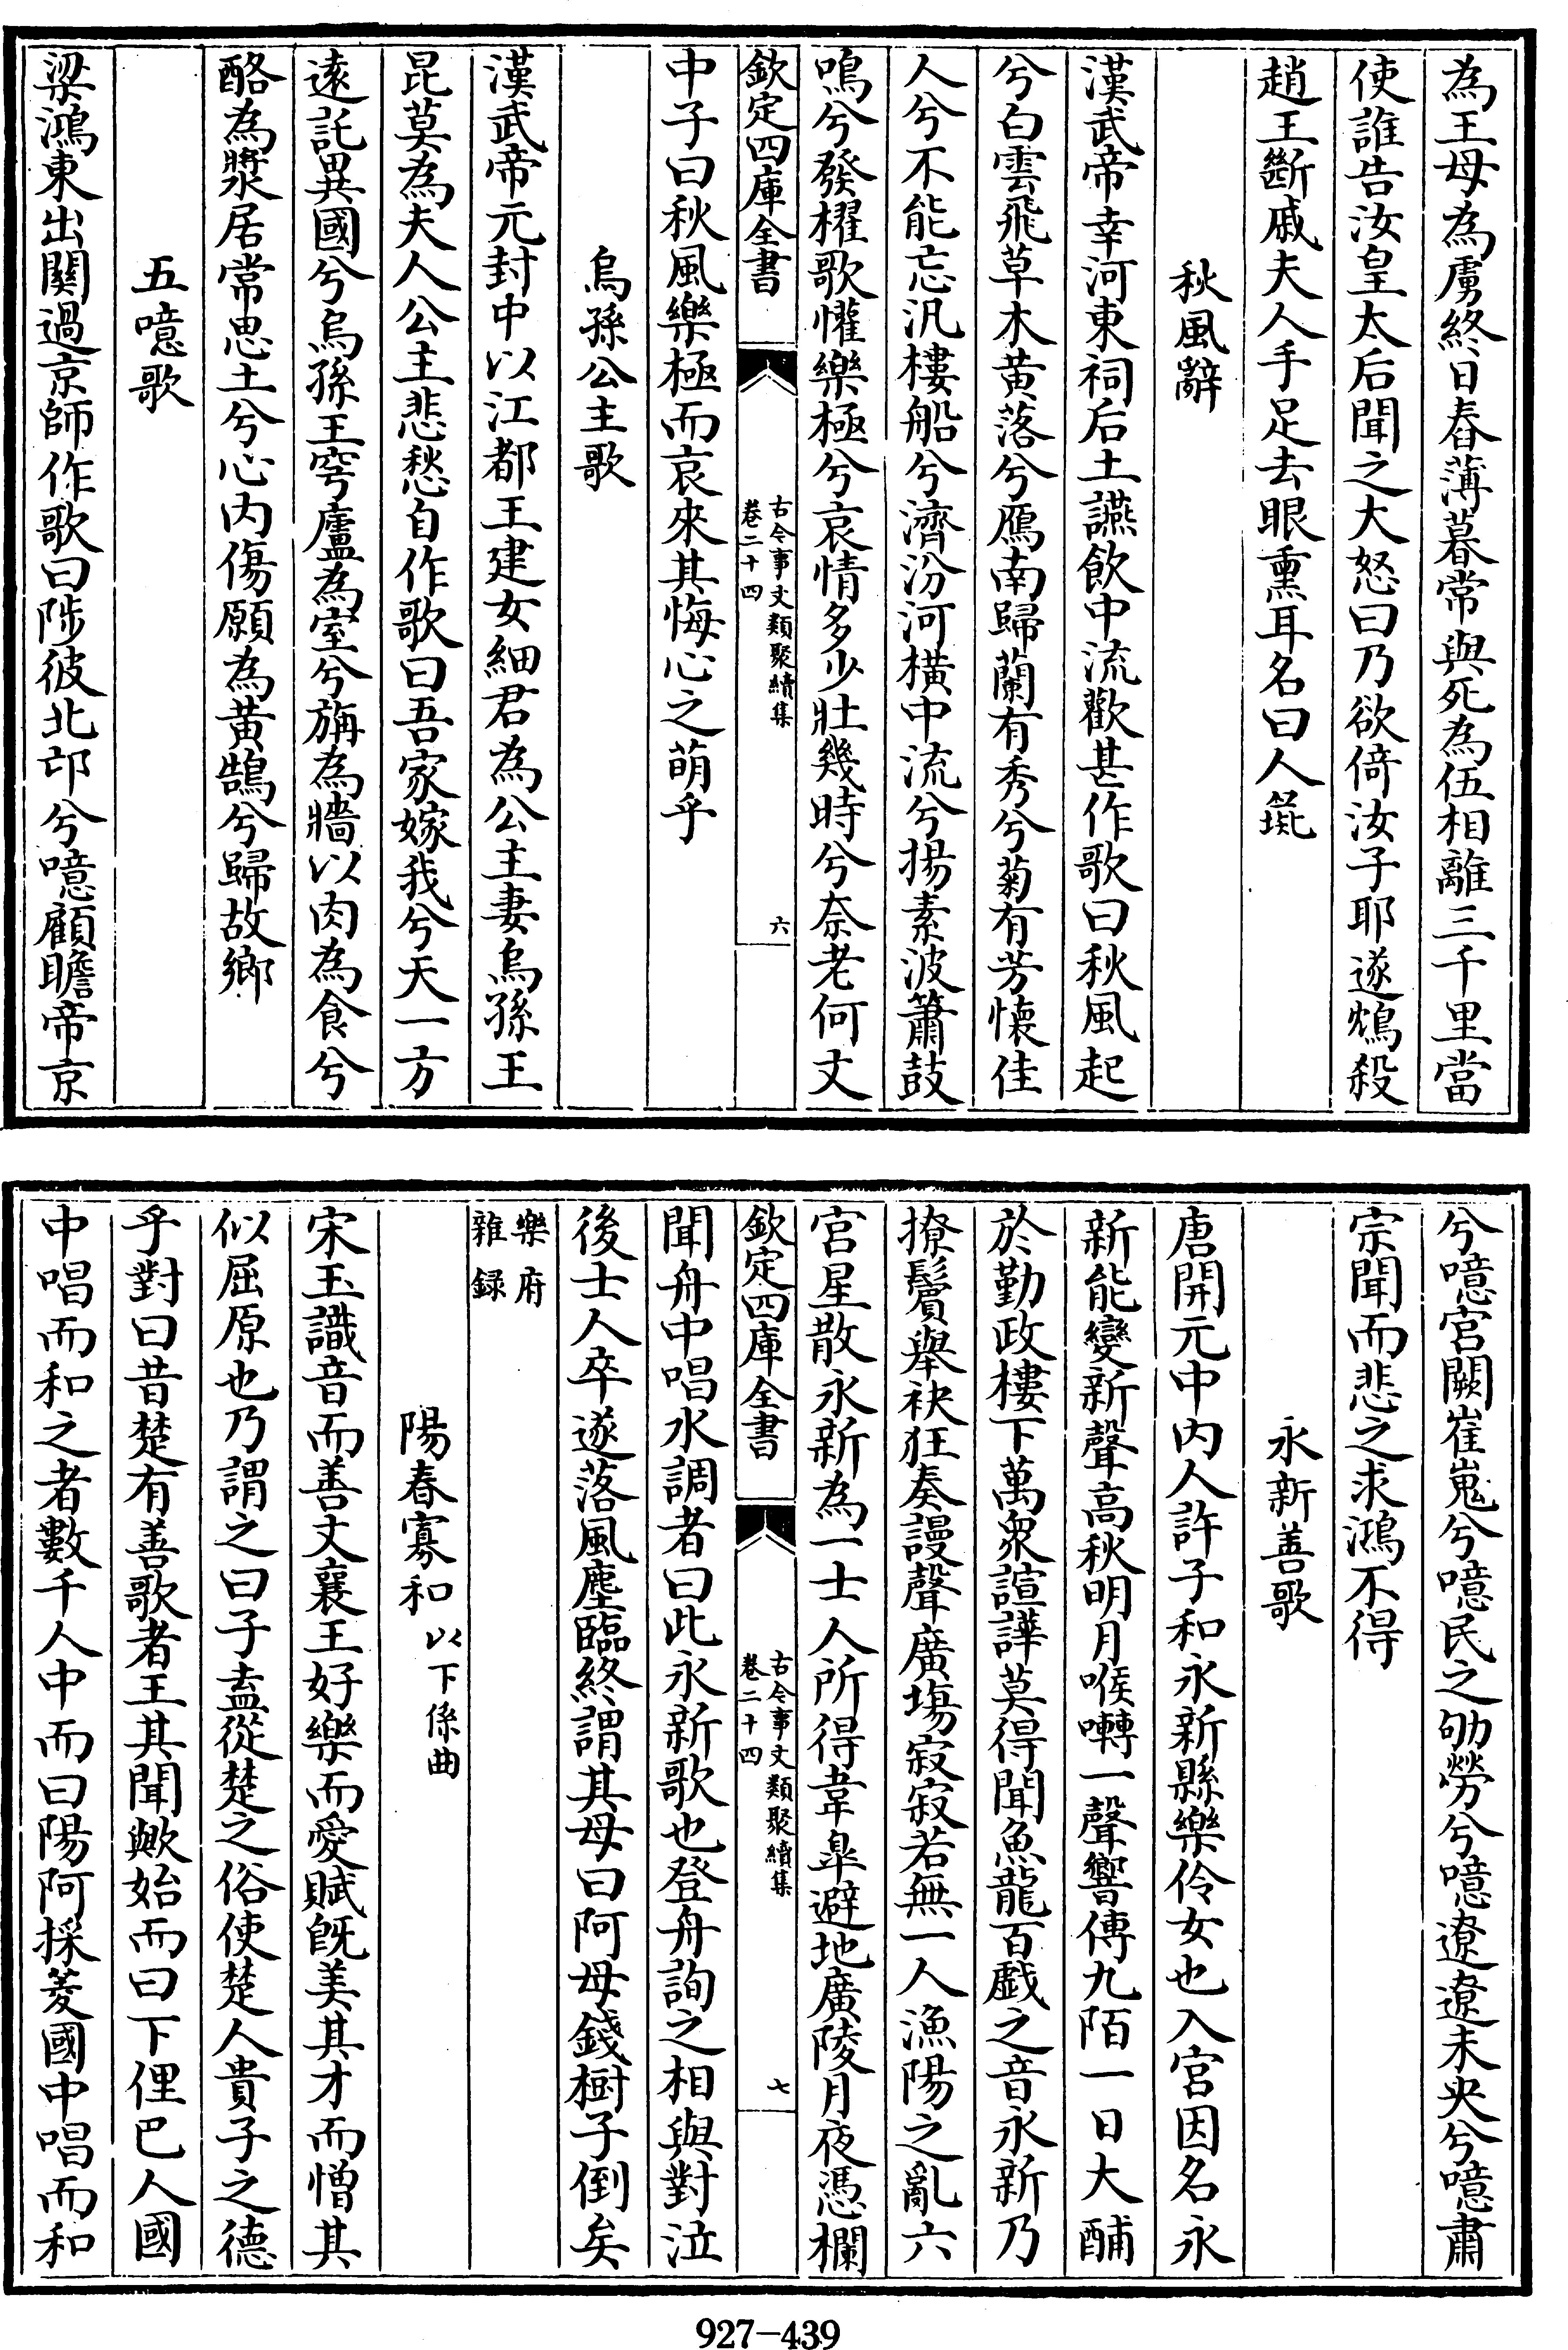 為王母為虜終日舂薄暮常與死為伍相離三千里當
使誰告汝皇太后聞之大怒曰乃欲倚汝子耶遂鴆殺
趙王斷戚夫人手足去眼熏耳名曰人彘
秋風辭
漢武帝幸河東祠后土讌飲中流歡甚作歌曰秋風起
兮白雲飛草木黄落兮鴈南歸蘭有秀兮菊有芳懷佳
人兮不能忘汎樓船兮濟汾河横中流兮揚素波簫鼓
鳴兮發櫂歌懽樂極兮哀情多少壯幾時兮奈老何文
欽定四庫全書
古今事文類聚續集
卷二十四
六
中子曰秋風樂極而哀來其悔心之萌乎
烏孫公主歌
漢武帝元封中以江都王建女細君為公主妻烏孫王
昆莫為夫人公主悲愁自作歌曰吾家嫁我兮天一方
逺託異國兮烏孫王穹廬為室兮旃為牆以肉為食兮
酪為漿居常思土兮心内傷願為黄鵠兮歸故鄉
五噫歌
梁鴻東出關過京師作歌曰陟彼北邙兮噫顧瞻帝京
兮噫宫闕崔嵬兮噫民之劬勞兮噫遼遼未央兮噫肅
宗聞而悲之求鴻不得
永新善歌
唐開元中内人許子和永新縣樂伶女也入宫因名永
新能變新聲高秋明月喉囀一聲響傳九陌一日大酺
於勤政樓下萬衆諠譁莫得聞魚龍百戲之音永新乃
撩鬢舉袂狂奏謾聲廣塲寂寂若無一人漁陽之亂六
宫星散永新為一士人所得韋臯避地廣陵月夜憑欄
欽定四庫全書
古今事文類聚續集
卷二十四
七
聞舟中唱水調者曰此永新歌也登舟詢之相與對泣
後士人卒遂落風塵臨終謂其母曰阿母錢樹子倒矣
樂府
雜録
陽春寡和以下係曲
宋玉識音而善文襄王好樂而愛賦旣美其才而憎其
似屈原也乃謂之曰子盍從楚之俗使楚人貴子之德
乎對曰昔楚有善歌者王其聞歟始而曰下俚巴人國
中唱而和之者數千人中而曰陽阿採菱國中唱而和
927-439